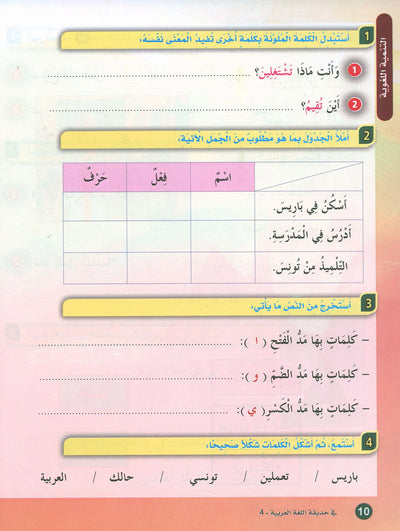 التنمية اللغوية
1 أَسْتَبْدِلُ الكَلِمَةَ المُلَوَّنَةَ بِكَلِمَةٍ أُخْرَى تُفيدُ المَعْنَى نَفْسَهُ:
1 وَأَنْتِ مَاذَا تَشْتَغِلِينَ؟
2 أَيْنَ تُقِيمُ؟
2 أَمْلَأُ الجَدْوَلَ بِمَا هُوَ مَطْلُوبٌ مِنَ الجُمَلِ الآتِيَةِ:
اسْمٌ فِعْلٌ حَرْفٌ
أَسْكُنُ فِي بَارِيسَ.
أَدْرُسُ فِي الْمَدْرَسَةِ.
التِّلْمِيذُ مِنْ تُونَسَ.
3 أَسْتَخْرِجُ مِنَ النَّصِّ مَا يَأْتِي:
– كَلِمَاتٍ بِهَا مَدُّ الْفَتْحِ ( ا ):
– كَلِمَاتٍ بِهَا مَدُّ الضَّمِّ ( و ):
– كَلِمَاتٍ بِهَا مَدُّ الْكَسْرِ ( ي ):
4 أَسْتَمِعُ، ثُمَّ أَشْكُلُ الكَلِمَاتِ شَكْلًا صَحِيحًا:
باريس / تعملين / تونسي / حالك / العربية
في حديقة اللغة العربية - 4
10